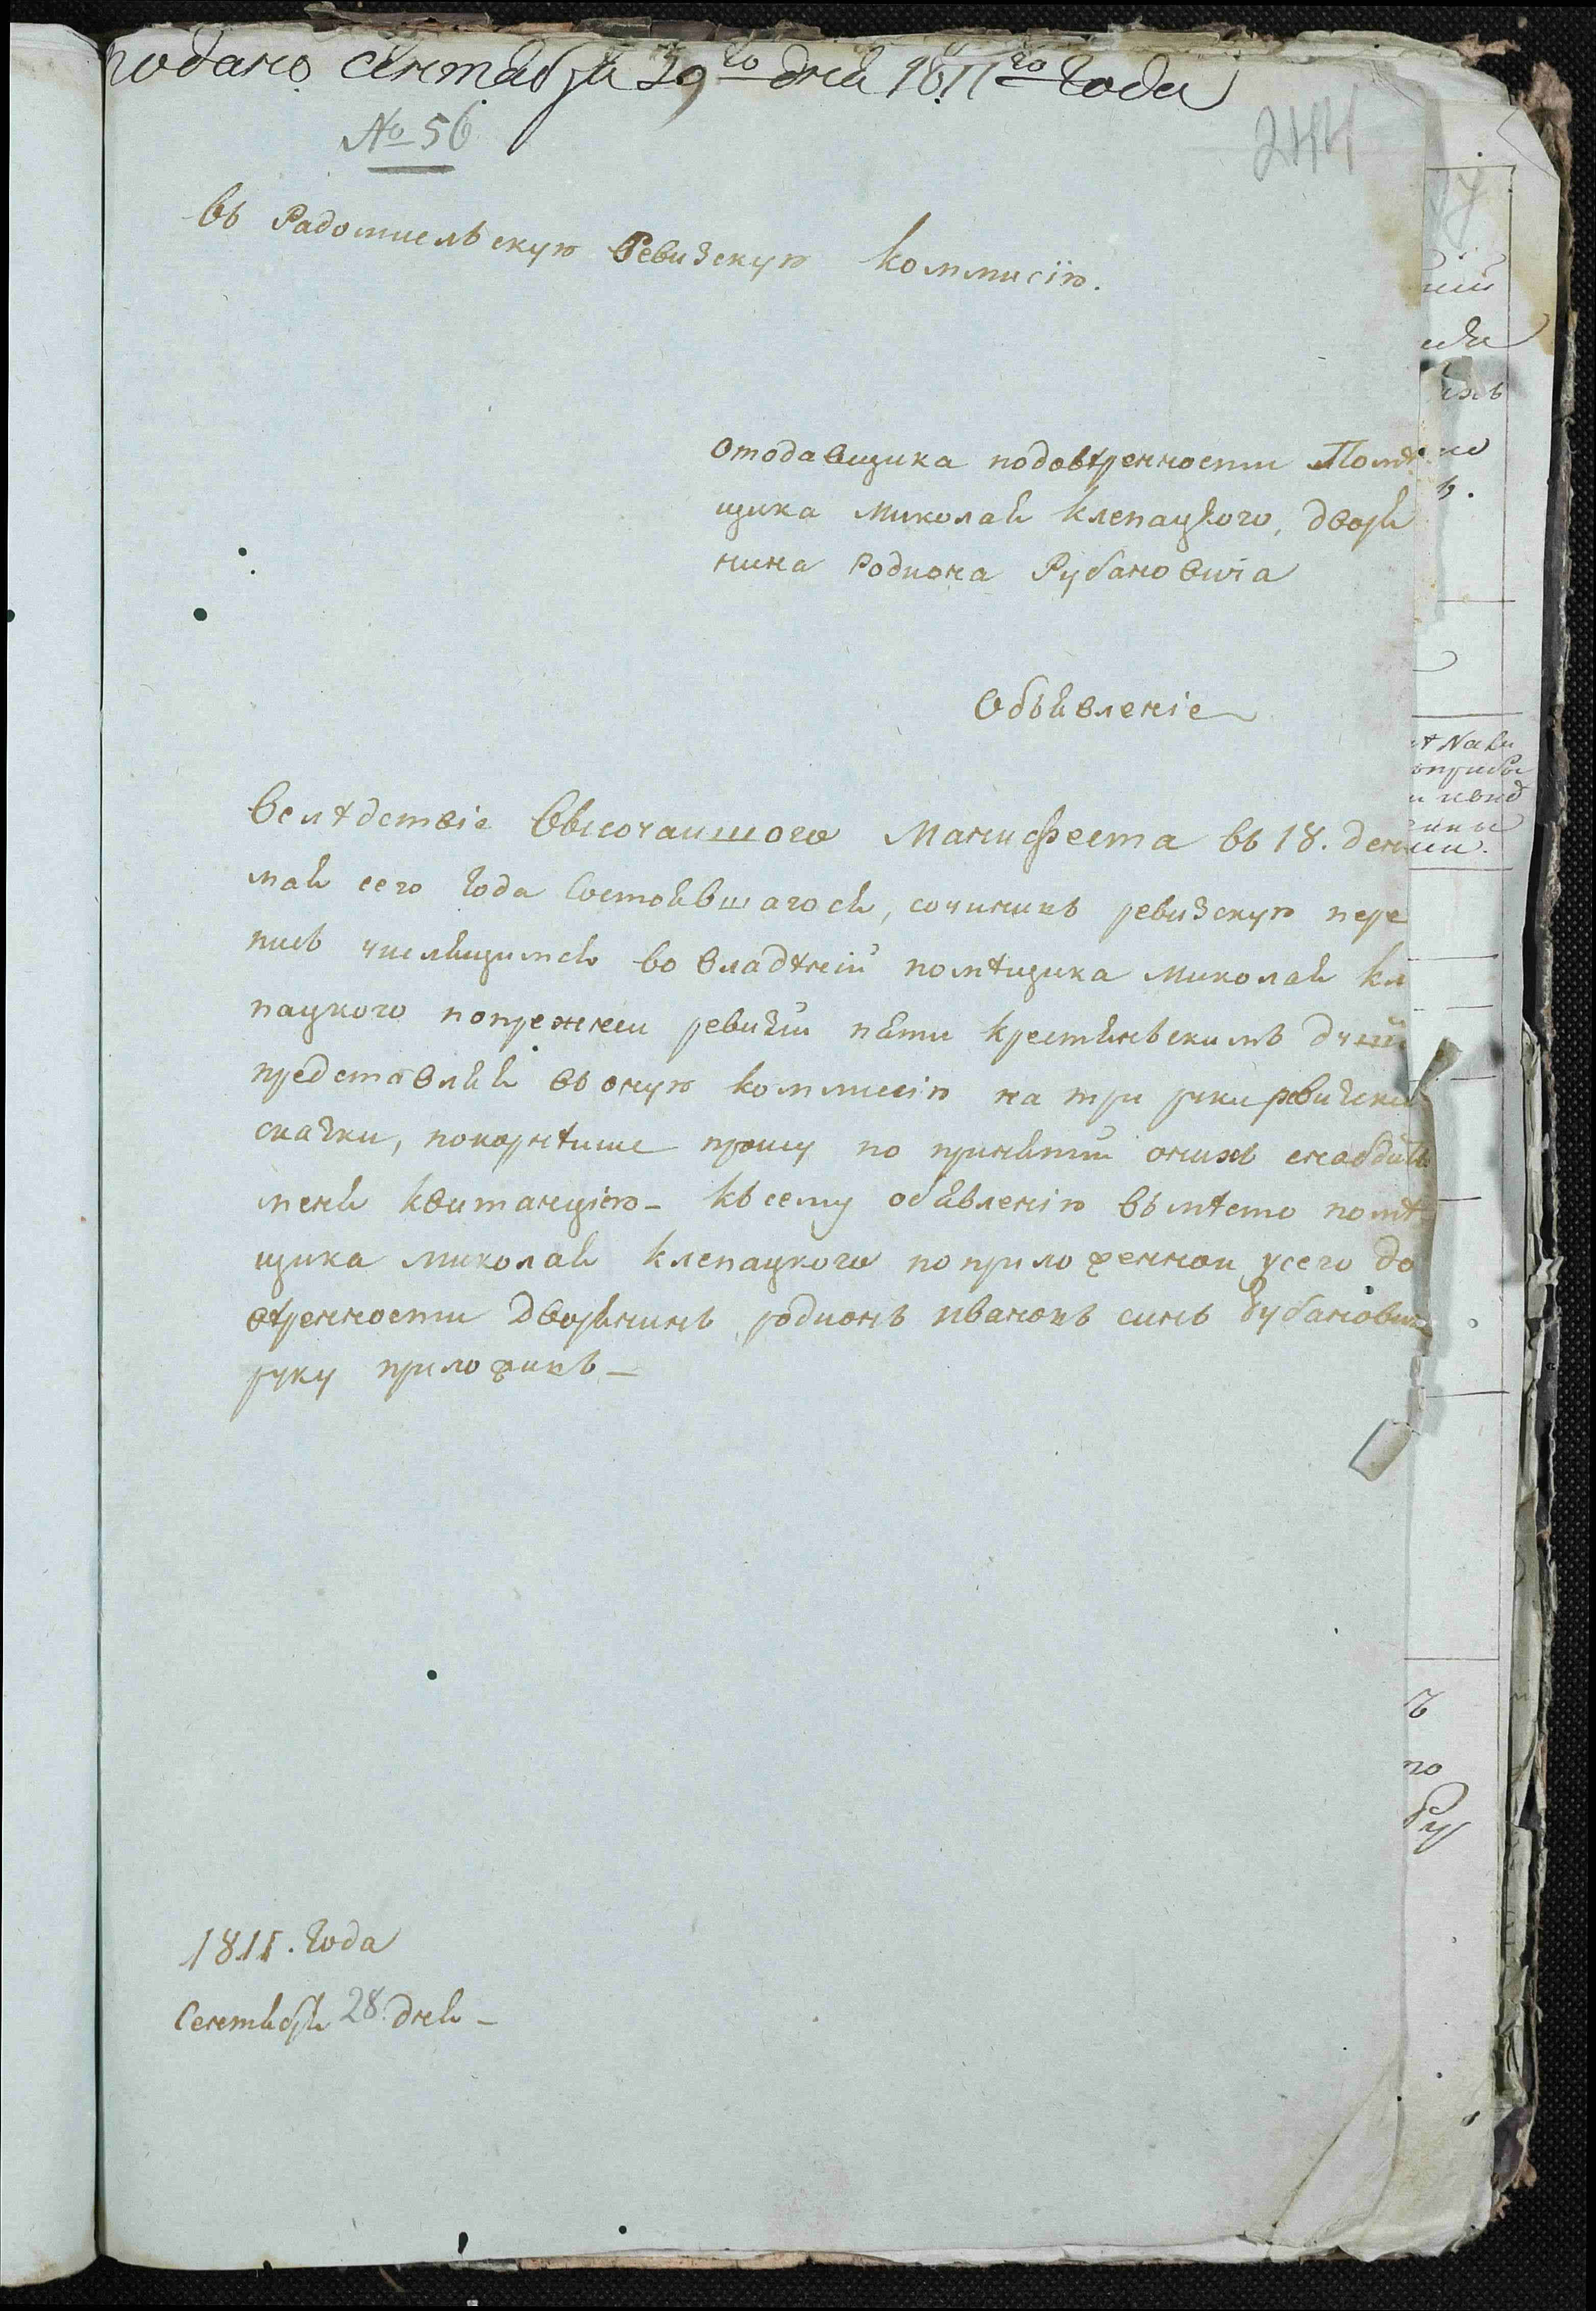 подано сентября 29го дня 1811го года
№ 56
244
въ Радомисльскую Ревизскую Коммисію.
Отодавщика подовѣренности Помѣ
щика Миколая Клепацкого, дворя
нина Родиона Рубановича
Объявленіе
Вслѣдствіе Высочаишого Манифеста въ 18. ден
мая сего года Состоявшагося, сочинивъ ревизскую пере
пись числящимся во владѣніи помѣщика Миколая Кле
пацкого попрежнеи ревизіи пяти крестянскимъ душ
представляя въ оную коммисію на три руки ревизски
сказки, покорнѣише прошу по принятіи онихъ снабдить
меня квитанціею – къ сему обявленію вьмѣсто помѣ
щика Миколая Клепацкого поприложенной усего до
вѣренности Дворянинъ родионъ ивановъ синъ Рубанович
руку приложивъ –
1811. года
Сентября 28. дня –